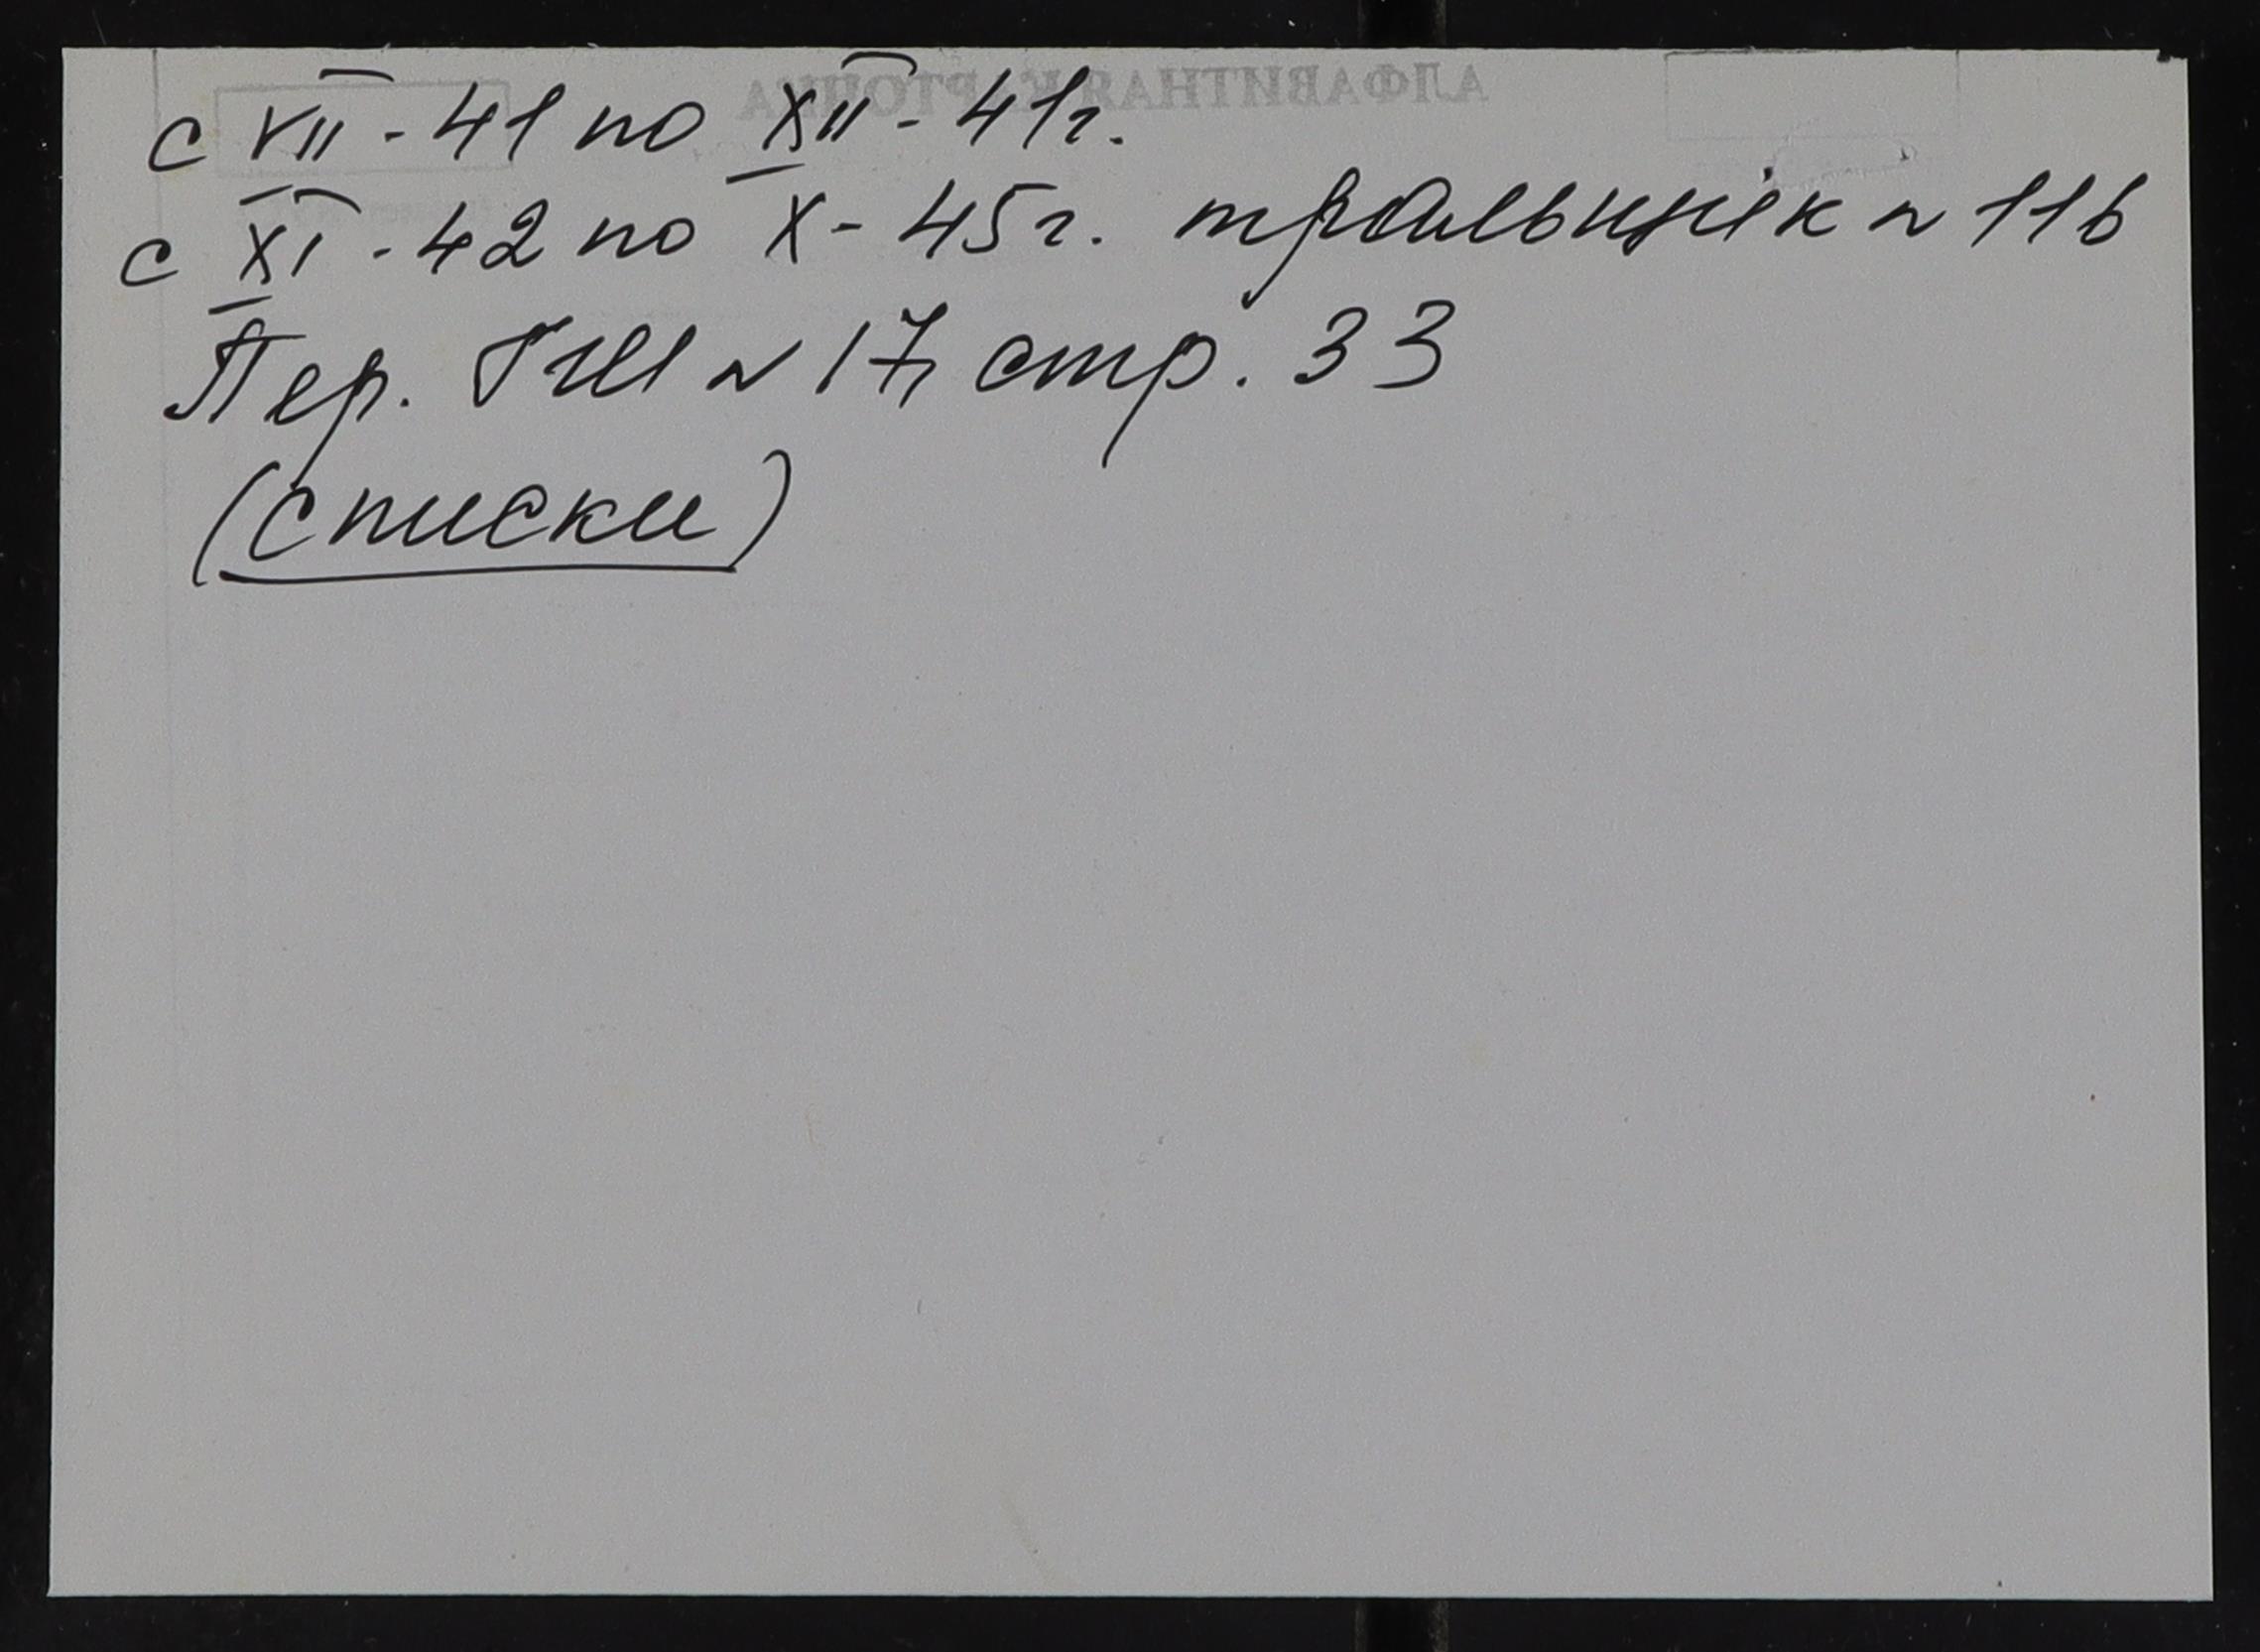 с VII - 41 по XII - 41 г.
с XI - 42 по X - 45 г. тральщик № 116
Пер. ГШ № 17, стр. 33
(списки)